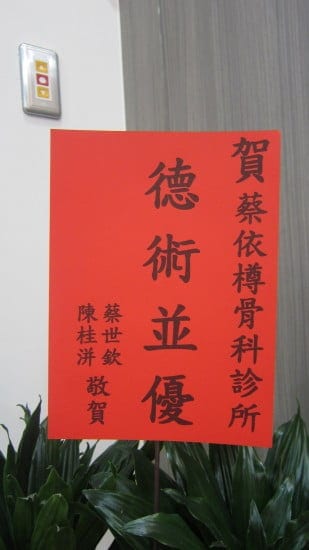 賀蔡依樽骨科診所
德術並優
蔡世欽
陳桂洴
敬賀